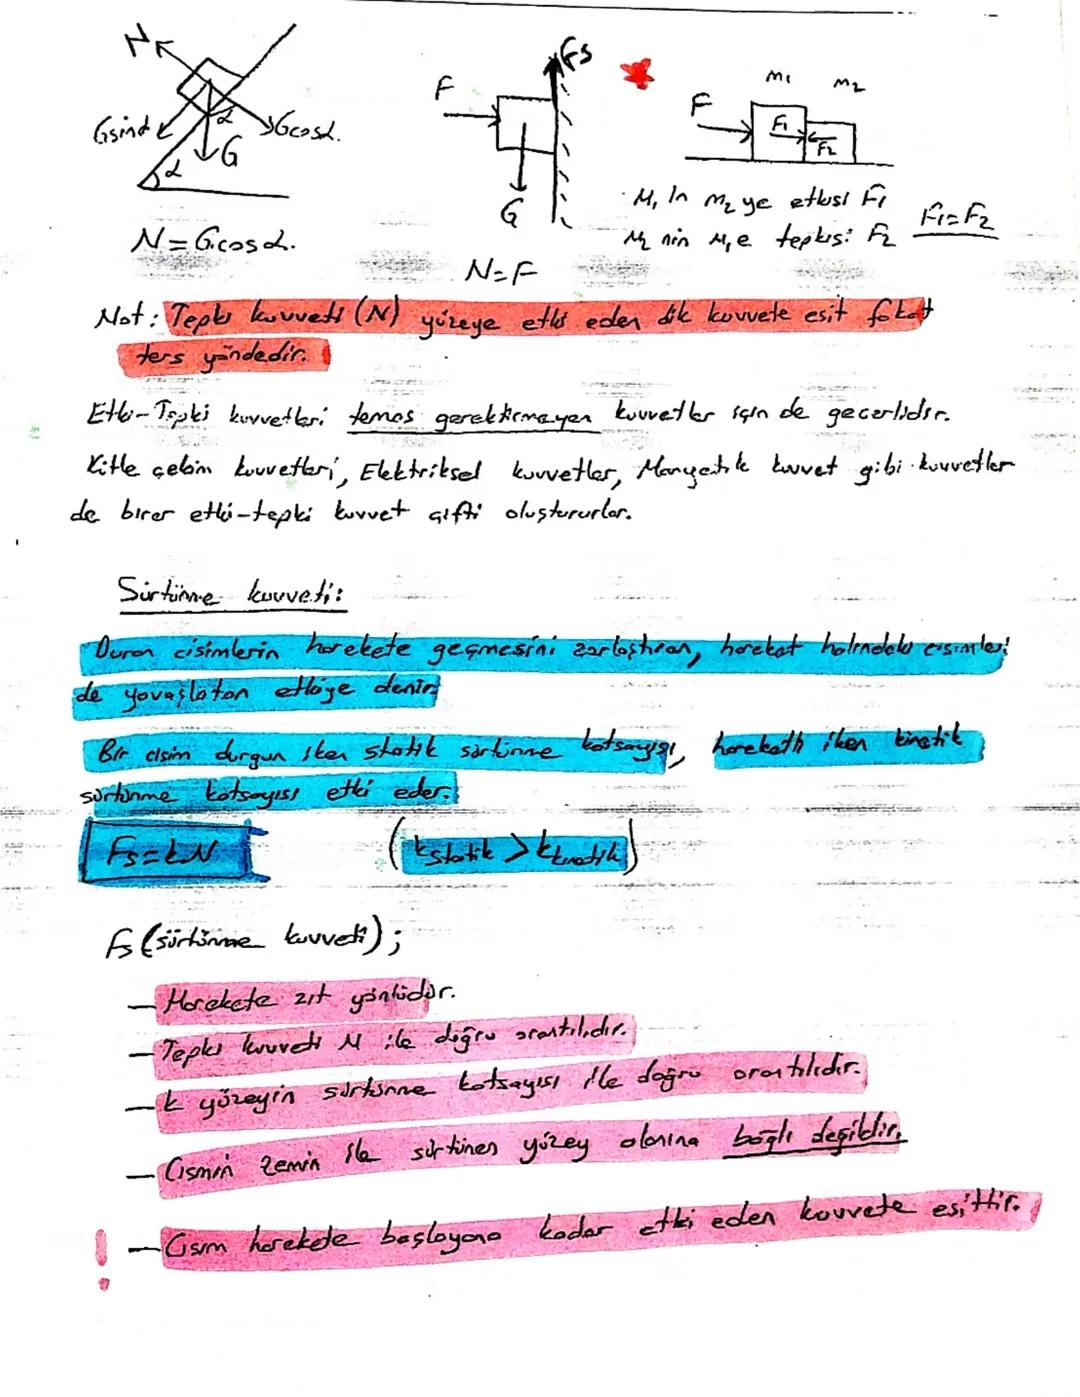 N
Gsinα
α
Gcosα.
G
α
N=G.cosα.
F
Fs
G
N=F
M1
M2
F
F1
F2
M1 in M2 ye etkisi F1
M2 nin M1e tepkisi F2
F1=F2
Not: Tepki kuvveti (N) yüzeye etki eden dik kuvvete eşit fakat
ters yöndedir.
Etki-Tepki kuvvetleri temas gerektirmeyen kuvvetler için de geçerlidir.
Kütle çekim kuvvetleri, Elektriksel kuvvetler, Manyetik kuvvet gibi kuvvetler
de birer etki-tepki kuvvet çifti oluştururlar.
Sürtünme kuvveti:
Duran cisimlerin harekete geçmesini zorlaştıran, hareket halindeki cisimleri
de yavaşlatan etkiye denir.
Bir cisim durgun iken statik sürtünme katsayısı, hareketli iken kinetik
sürtünme katsayısı etki eder.
Fs=kN
(kstatik > kkinetik)
Fs (sürtünme kuvveti);
— Harekete zıt yönlüdür.
— Tepki kuvveti N ile doğru orantılıdır.
— k yüzeyin sürtünme katsayısı ile doğru orantılıdır.
— Cismin zemin ile sürtünen yüzey alanına bağlı değildir.
! — Cisim harekete başlayana kadar etki eden kuvvete eşittir.